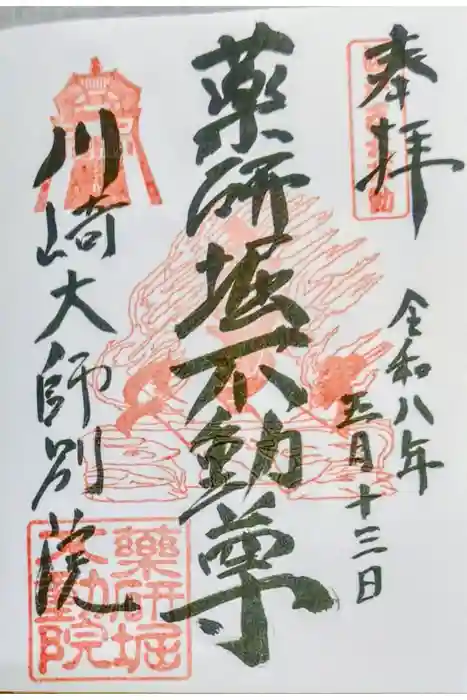 奉拝
令和八年
三月十三日
薬研堀不動尊
川崎大師別院
藥研堀
不動院